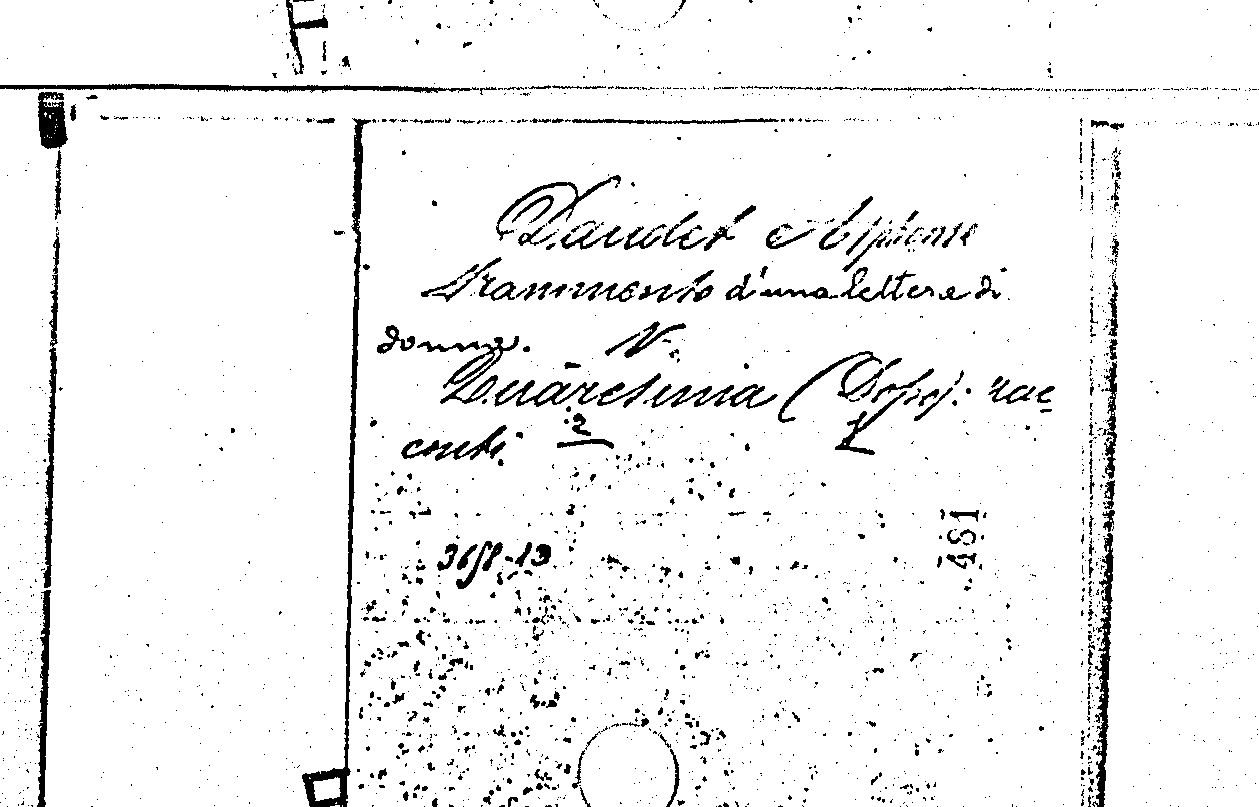 Daudet Alphonse
Frammento d'una lettere di
donna. V.
Quaresima (Dopo): rac=
conti. 2 1
3658-13
481